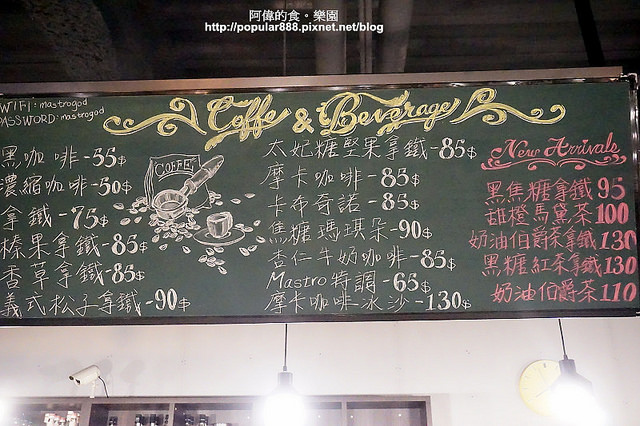 阿偉的食。樂園
http://popular888.pixnet.net/blog
WIFI: mastrogod
PASSWORD: mastrogod
Coffe & Beverage
黑咖啡-55$
濃縮咖啡-50$
拿鐵-75$
榛果拿鐵-85$
香草拿鐵-85$
義式松子拿鐵-90$
COFFEE
太妃糖堅果拿鐵-85$
摩卡咖啡-85$
卡布奇諾-85$
焦糖瑪琪朵-90$
杏仁牛奶咖啡-85$
Mastro特調-65$
摩卡咖啡冰沙-130$
New Arrivals
黑焦糖拿鐵 95
甜橙馬黛茶 100
奶油伯爵茶拿鐵 130
黑糖紅茶拿鐵 130
奶油伯爵茶 110